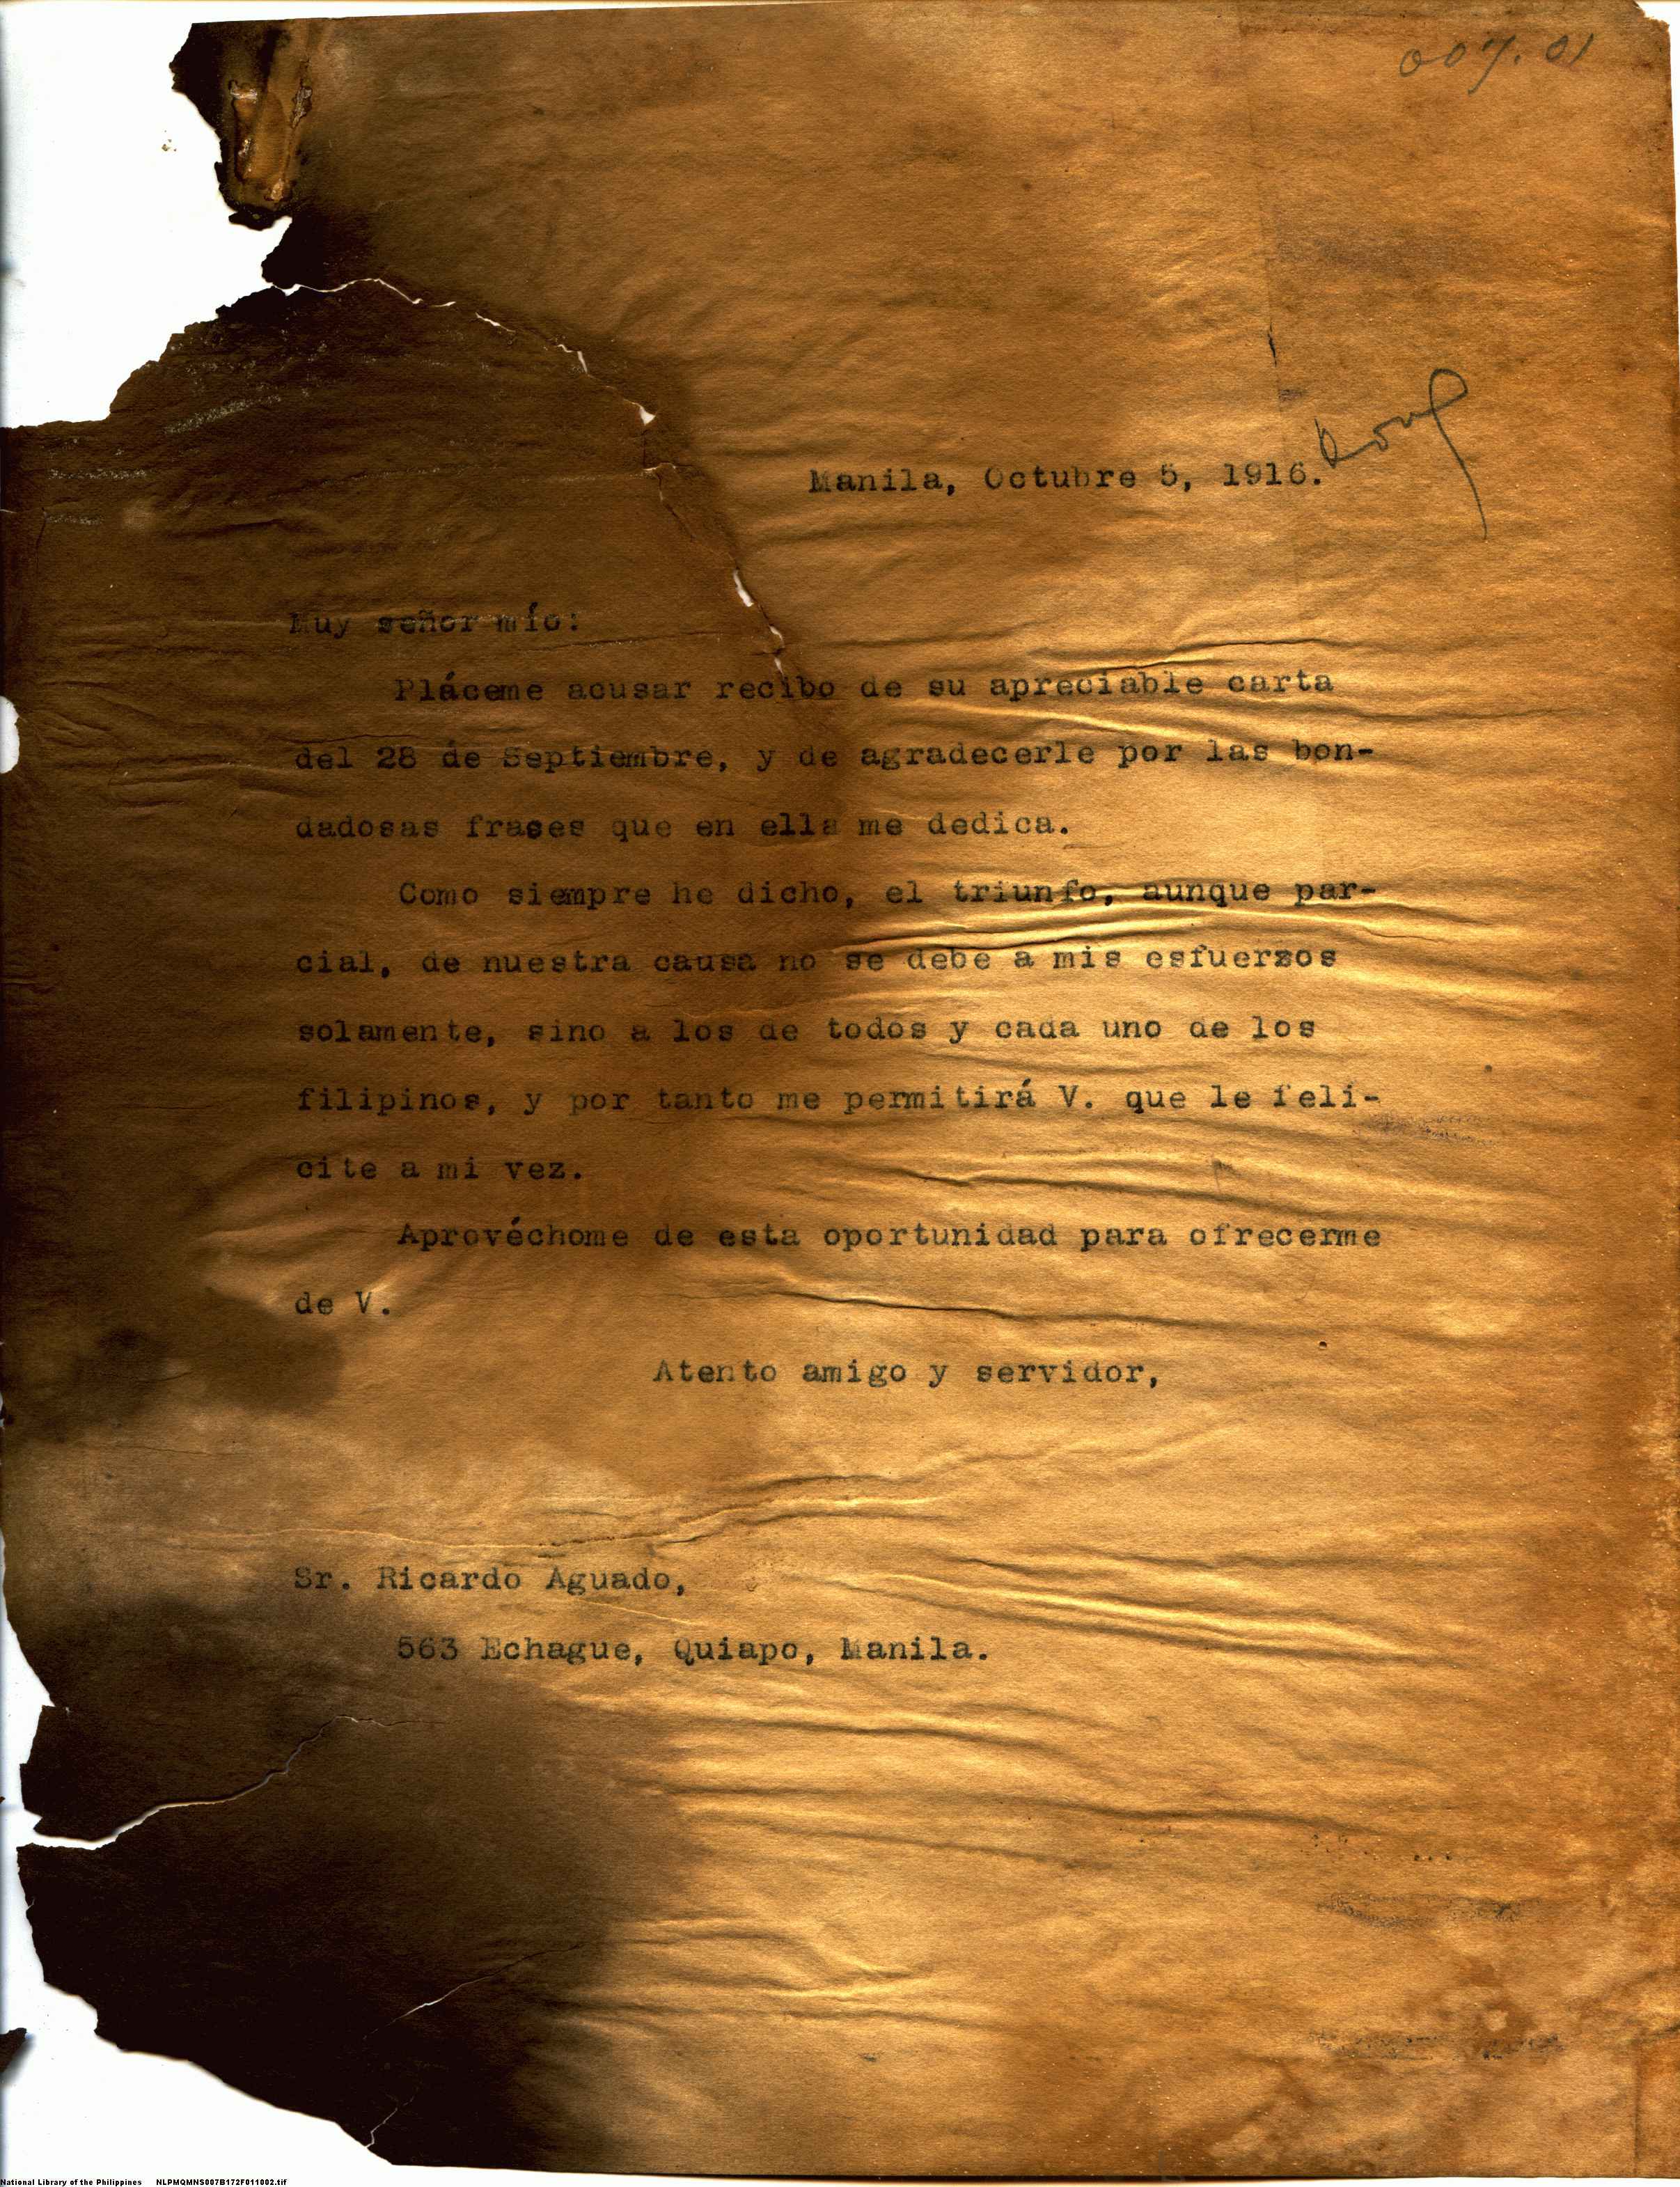 007.01
Manila, Octubre 5, 1916.
Muy señor mío:
Pláceme acusar recibo de su apreciable carta
del 28 de Septiembre, y de agradecerle por las bon-
dadosas frases que en ella me dedica.
Como siempre he dicho, el triunfo, aunque par-
cial, de nuestra causa no se debe a mis esfuerzos
solamente, sino a los de todos y cada uno de los
filipinos, y por tanto me permitirá V. que le feli-
cite a mi vez.
Aprovéchome de esta oportunidad para ofrecerme
de V.
Atento amigo y servidor,
Sr. Ricardo Aguado,
563 Echague, Quiapo, Manila.
National Library of the Philippines NLPMQMNS007B172F011002.tif